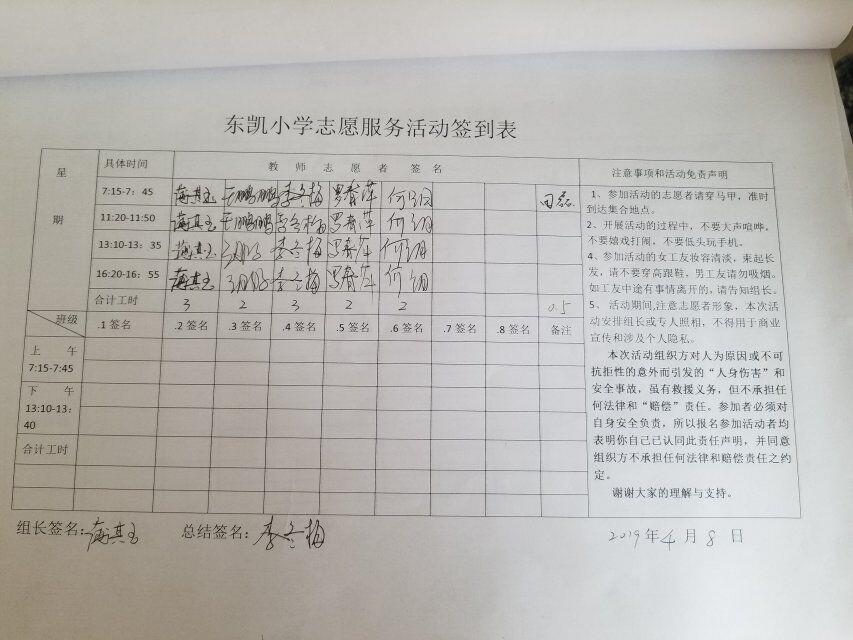 东凯小学志愿服务活动签到表
星期
具体时间 教师志愿者签名 注意事项和活动免责声明
7:15-7：45 王鹏鹏 李冬梅 罗春萍 何钢 田磊
11:20-11:50 王鹏鹏 李冬梅 罗春萍 何钢
13:10-13：35 李冬梅 罗春萍 何钢
16:20-16：55 李冬梅 罗春萍 何钢
合计工时 3 2 3 2 2 0.5
班级 .1 签名 .2 签名 .3 签名 .4 签名 .5 签名 .6 签名 .7 签名 .8 签名 备注
上午
7:15-7:45
下午
13:10-13：
40
合计工时
1、参加活动的志愿者请穿马甲，准时
到达集合地点。
2、开展活动的过程中，不要大声喧哗，
不要嬉戏打闹，不要低头玩手机。
4、参加活动的女工友妆容清淡，束起长
发，请不要穿高跟鞋，男工友请勿吸烟。
如工友中途有事情离开的，请告知组长。
5、活动期间,注意志愿者形象，本次活
动安排组长或专人照相，不得用于商业
宣传和涉及个人隐私。
本次活动组织方对人为原因或不可
抗拒性的意外而引发的“人身伤害”和
安全事故，虽有救援义务，但不承担任
何法律和“赔偿”责任。参加者必须对
自身安全负责，所以报名参加活动者均
表明你自己已认同此责任声明，并同意
组织方不承担任何法律和赔偿责任之约
定。
谢谢大家的理解与支持。
组长签名: 总结签名: 李冬梅 2019年4月8日